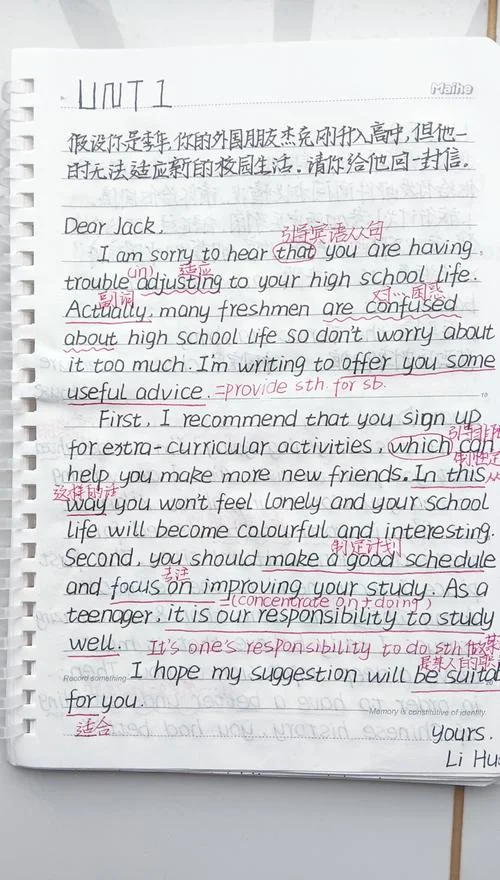 UNIT 1
Maihe
假设你是李华,你的外国朋友杰克刚升入高中,但他一
时无法适应新的校园生活。请你给他回一封信。
Dear Jack,
引导宾语从句
I am sorry to hear that you are having
(in) 适应
trouble adjusting to your high school life.
副词 对…困惑
Actually, many freshmen are confused
about high school life so don't worry about
it too much. I'm writing to offer you some
useful advice. =provide sth. for sb.
10
First, I recommend that you sign up
引导非限
for extra-curricular activities, which can
制性定
help you make more new friends. In this
这样的话 从
way you won't feel lonely and your school
life will become colourful and interesting.
制定计划
Second, you should make a good schedule
专注
and focus on improving your study. As a
=(concentrate on+doing)
teenager, it is our responsibility to study
well. It's one's responsibility to do sth 做某
是某人的职
Record something I hope my suggestion will be suitab
for you. Memory is constitutive of identity.
适合
yours.
Li Hu